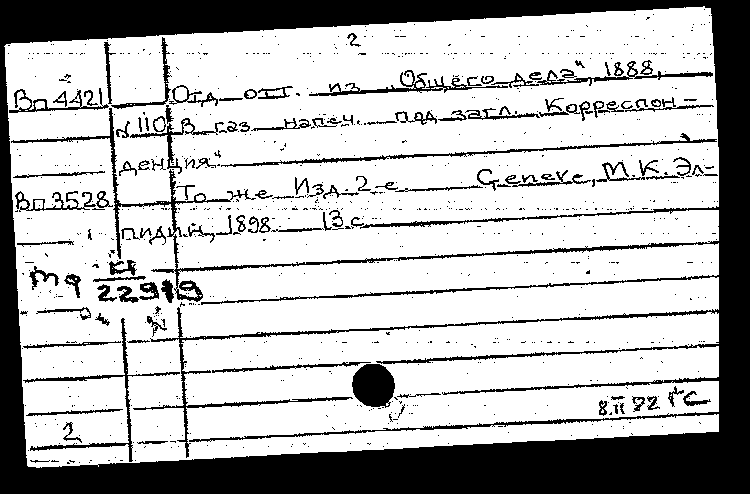 2
Вп 4421 Отд. отт. из „Общего дела", 1888,
№ 110. В газ. напеч. под загл. „Корреспон-
денция"
Вп 3528 То же. Изд. 2-е. Geneve, М.К. Эл-
пидин, 1898. 13 с.
Мф КП
22919
8.II 72
2